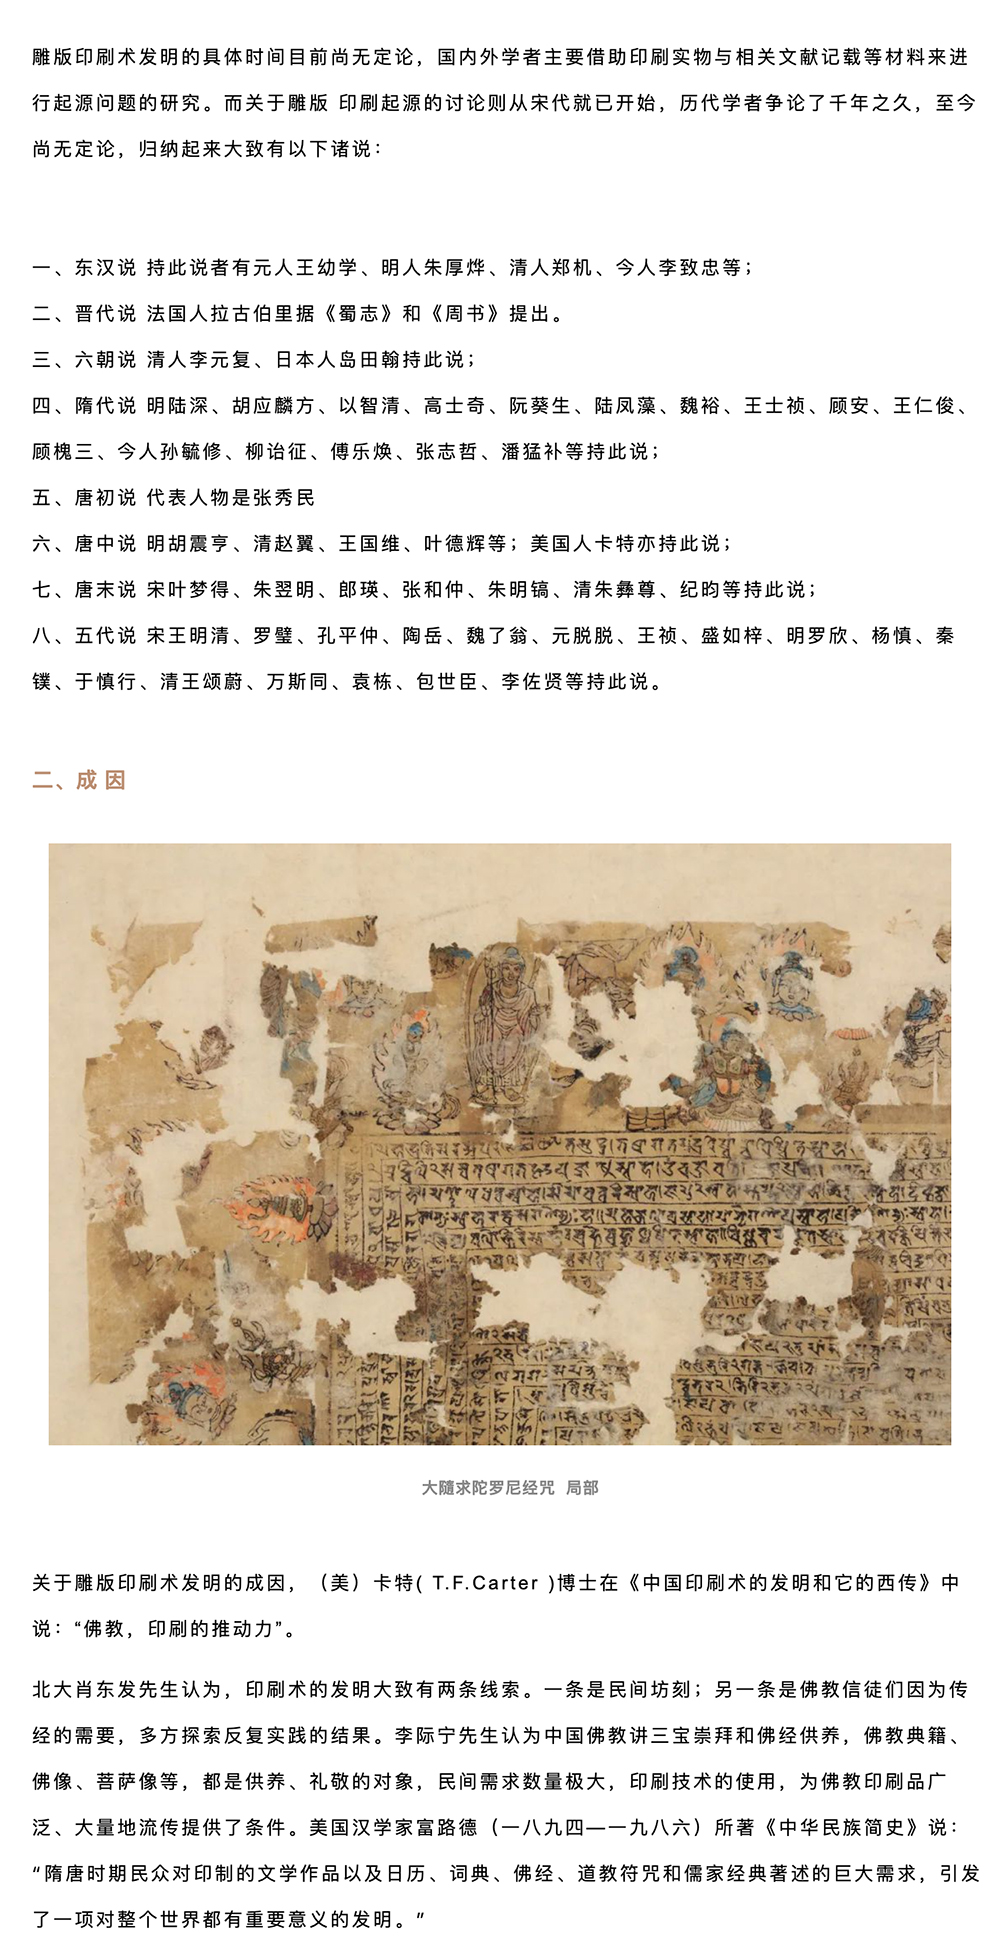 雕版印刷术发明的具体时间目前尚无定论，国内外学者主要借助印刷实物与相关文献记载等材料来进
行起源问题的研究。而关于雕版 印刷起源的讨论则从宋代就已开始，历代学者争论了千年之久，至今
尚无定论，归纳起来大致有以下诸说：
一、东汉说 持此说者有元人王幼学、明人朱厚烨、清人郑机、今人李致忠等；
二、晋代说 法国人拉古伯里据《蜀志》和《周书》提出。
三、六朝说 清人李元复、日本人岛田翰持此说；
四、隋代说 明陆深、胡应麟方、以智清、高士奇、阮葵生、陆凤藻、魏裕、王士祯、顾安、王仁俊、
顾槐三、今人孙毓修、柳诒征、傅乐焕、张志哲、潘猛补等持此说；
五、唐初说 代表人物是张秀民
六、唐中说 明胡震亨、清赵翼、王国维、叶德辉等；美国人卡特亦持此说；
七、唐末说 宋叶梦得、朱翌明、郎瑛、张和仲、朱明镐、清朱彝尊、纪昀等持此说；
八、五代说 宋王明清、罗璧、孔平仲、陶岳、魏了翁、元脱脱、王祯、盛如梓、明罗欣、杨慎、秦
镤、于慎行、清王颂蔚、万斯同、袁栋、包世臣、李佐贤等持此说。
二、成 因
大隨求陀罗尼经咒 局部
关于雕版印刷术发明的成因，（美）卡特( T.F.Carter )博士在《中国印刷术的发明和它的西传》中
说：“佛教，印刷的推动力”。
北大肖东发先生认为，印刷术的发明大致有两条线索。一条是民间坊刻；另一条是佛教信徒们因为传
经的需要，多方探索反复实践的结果。李际宁先生认为中国佛教讲三宝崇拜和佛经供养，佛教典籍、
佛像、菩萨像等，都是供养、礼敬的对象，民间需求数量极大，印刷技术的使用，为佛教印刷品广
泛、大量地流传提供了条件。美国汉学家富路德（一八九四—一九八六）所著《中华民族简史》说：
“隋唐时期民众对印制的文学作品以及日历、词典、佛经、道教符咒和儒家经典著述的巨大需求，引发
了一项对整个世界都有重要意义的发明。”